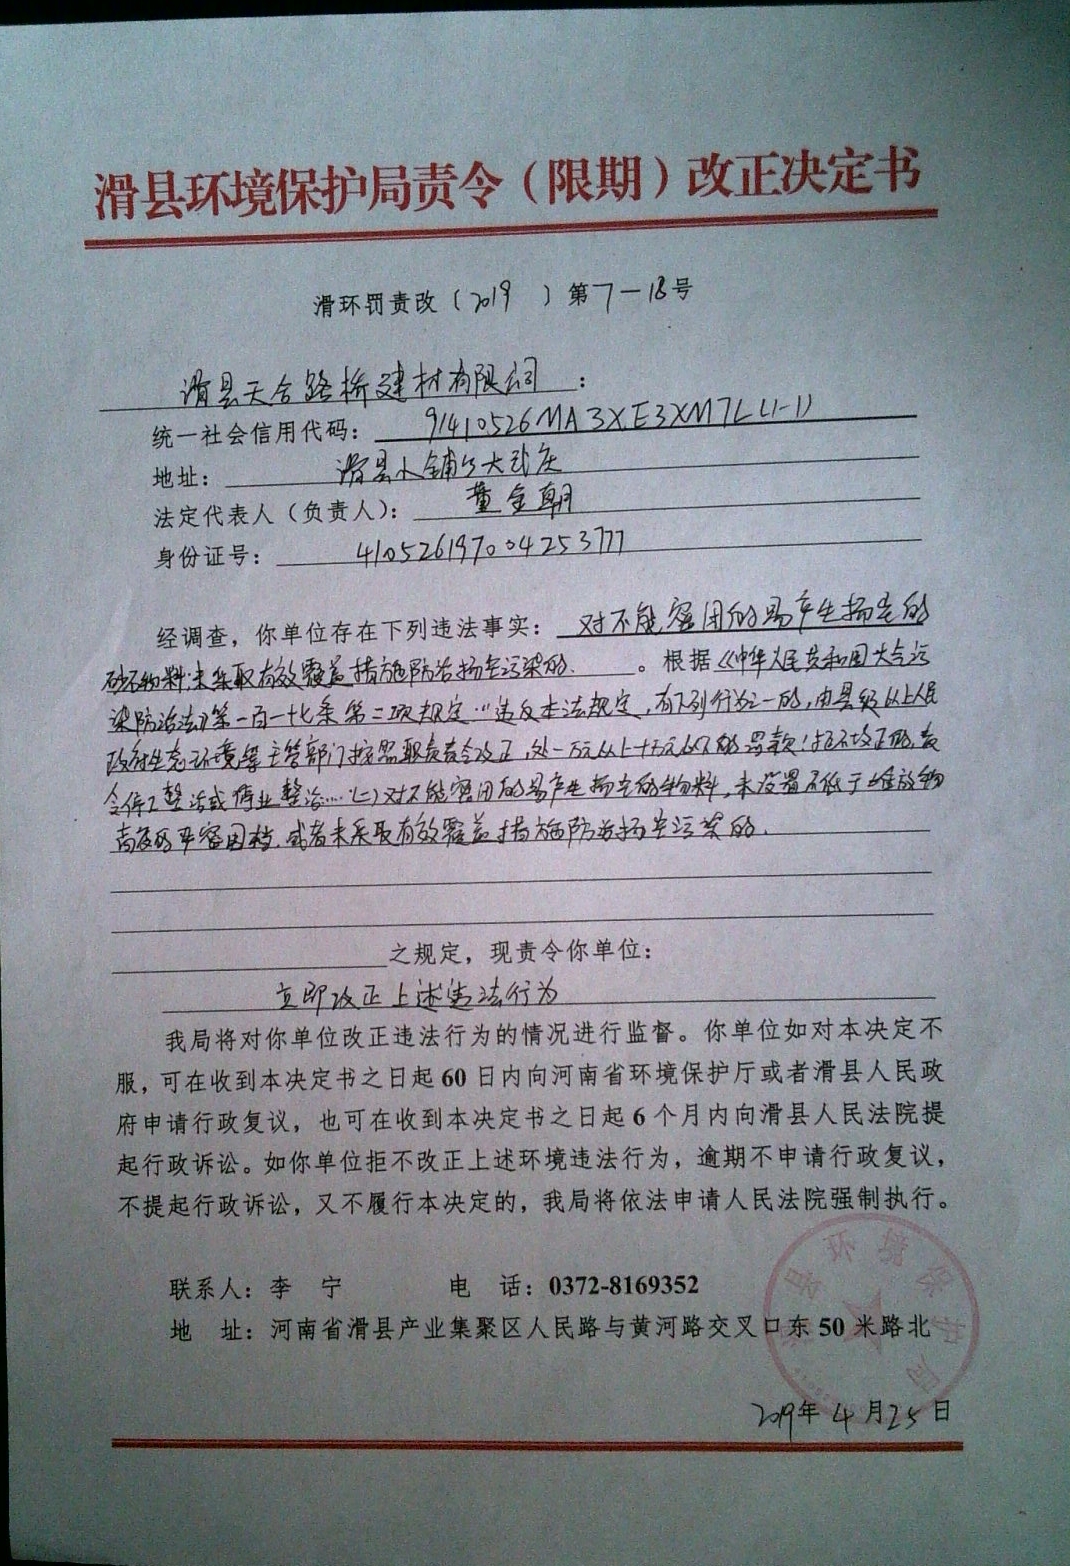 滑县环境保护局责令（限期）改正决定书
滑环罚责改（2019 ）第7-18号
滑县天合路桥建材有限公司：
统一社会信用代码：91410526MA3XE3XM7L(1-1)
地址：滑县小铺乡大武庄
法定代表人（负责人）：董金朝
身份证号：410526197004253777
经调查，你单位存在下列违法事实：对不能密闭的易产生扬尘的
砂石物料，未采取有效覆盖措施防治扬尘污染的。根据《中华人民共和国大气污
染防治法》第一百一十七条第二项规定"违反本法规定，有下列行为之一的，由县级以上人民
政府生态环境等主管部门按照职责责令改正，处一万元以上十万元以下的罚款；拒不改正的，责
令停工整治或停业整治…(二)对不能密闭的易产生扬尘的物料，未设置不低于堆放物
高度的严密围挡，或者未采取有效覆盖措施防治扬尘污染的.
之规定，现责令你单位：
立即改正上述违法行为
我局将对你单位改正违法行为的情况进行监督。你单位如对本决定不
服，可在收到本决定书之日起 60 日内向河南省环境保护厅或者滑县人民政
府申请行政复议，也可在收到本决定书之日起 6 个月内向滑县人民法院提
起行政诉讼。如你单位拒不改正上述环境违法行为，逾期不申请行政复议，
不提起行政诉讼，又不履行本决定的，我局将依法申请人民法院强制执行。
联系人：李 宁 电 话：0372-8169352
地 址：河南省滑县产业集聚区人民路与黄河路交叉口东 50 米路北
滑县环境保护局
2019年4月25日